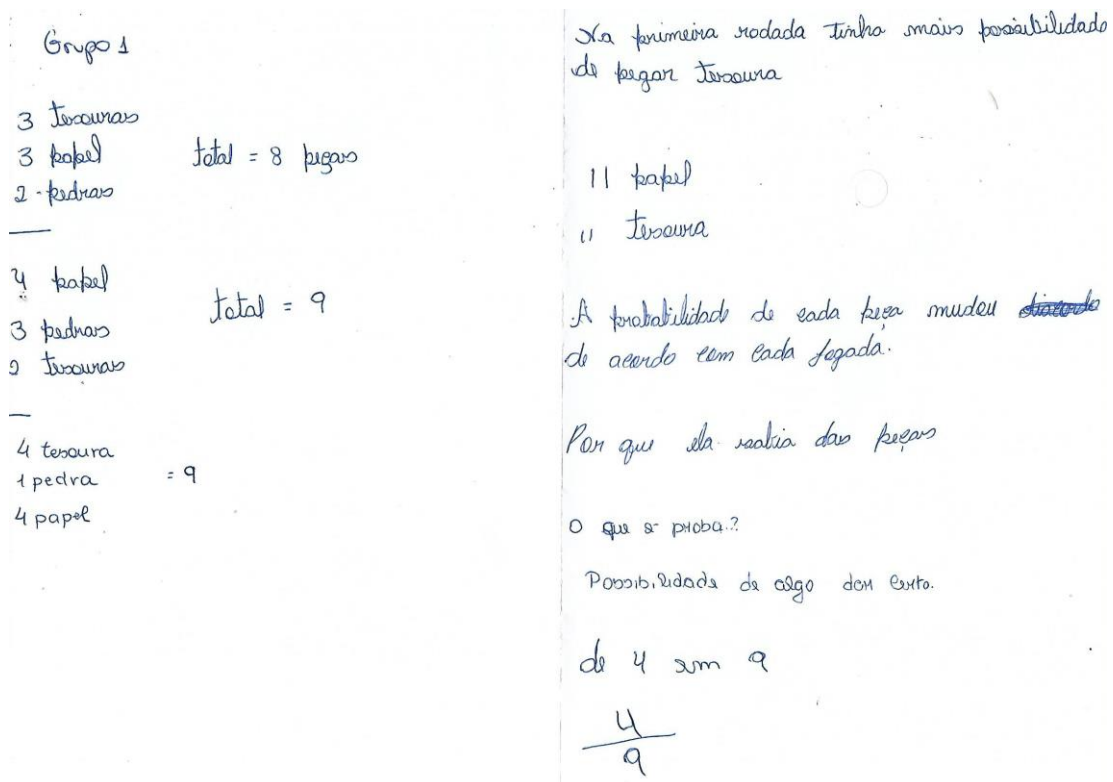 Grupo 1
3 tesouras
3 papel
total = 8 peças
2 - pedras
4 papel
total = 9
3 pedras
2 tesouras
4 tesoura
1 pedra = 9
4 papel
Na primeira rodada tinha mais possibilidade
de pegar tesoura
11 papel
11 tesoura
A probabilidade de cada peça mudou
de acordo com cada jogada.
Por que ela sabia das peças
O que é proba.?
Possibilidade de algo dar certo.
de 4 em 9
4
9